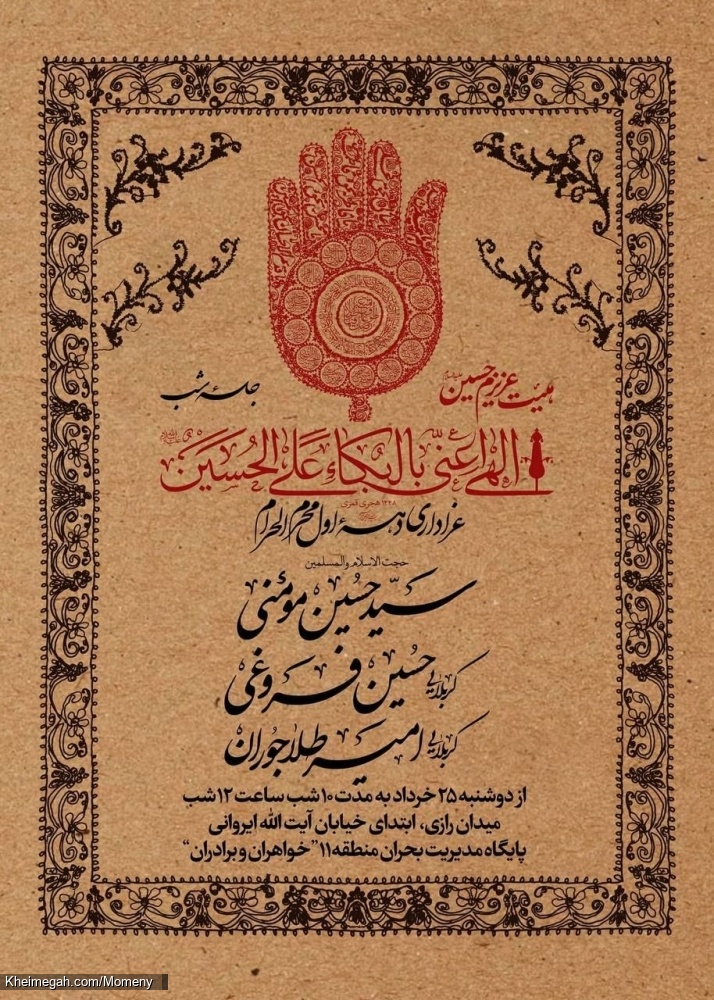 هیئت عزیزم حسین
جلسهٔ شب
الهی اعنّی بالبُکاءِ عَلَی الحُسَین
۱۴۴۸ هجری قمری
عزاداری دههٔ اول محرم الحرام
حجت الاسلام والمسلمین
سیّد حسین مومنی
کربلایی حسین فروغی
کربلایی امیر طلاجوران
از دوشنبه ۲۵ خرداد به مدت ۱۰ شب ساعت ۱۲ شب
میدان رازی، ابتدای خیابان آیت الله ایروانی
پایگاه مدیریت بحران منطقه ۱۱ "خواهران و برادران"
Kheimegah.com/Momeny